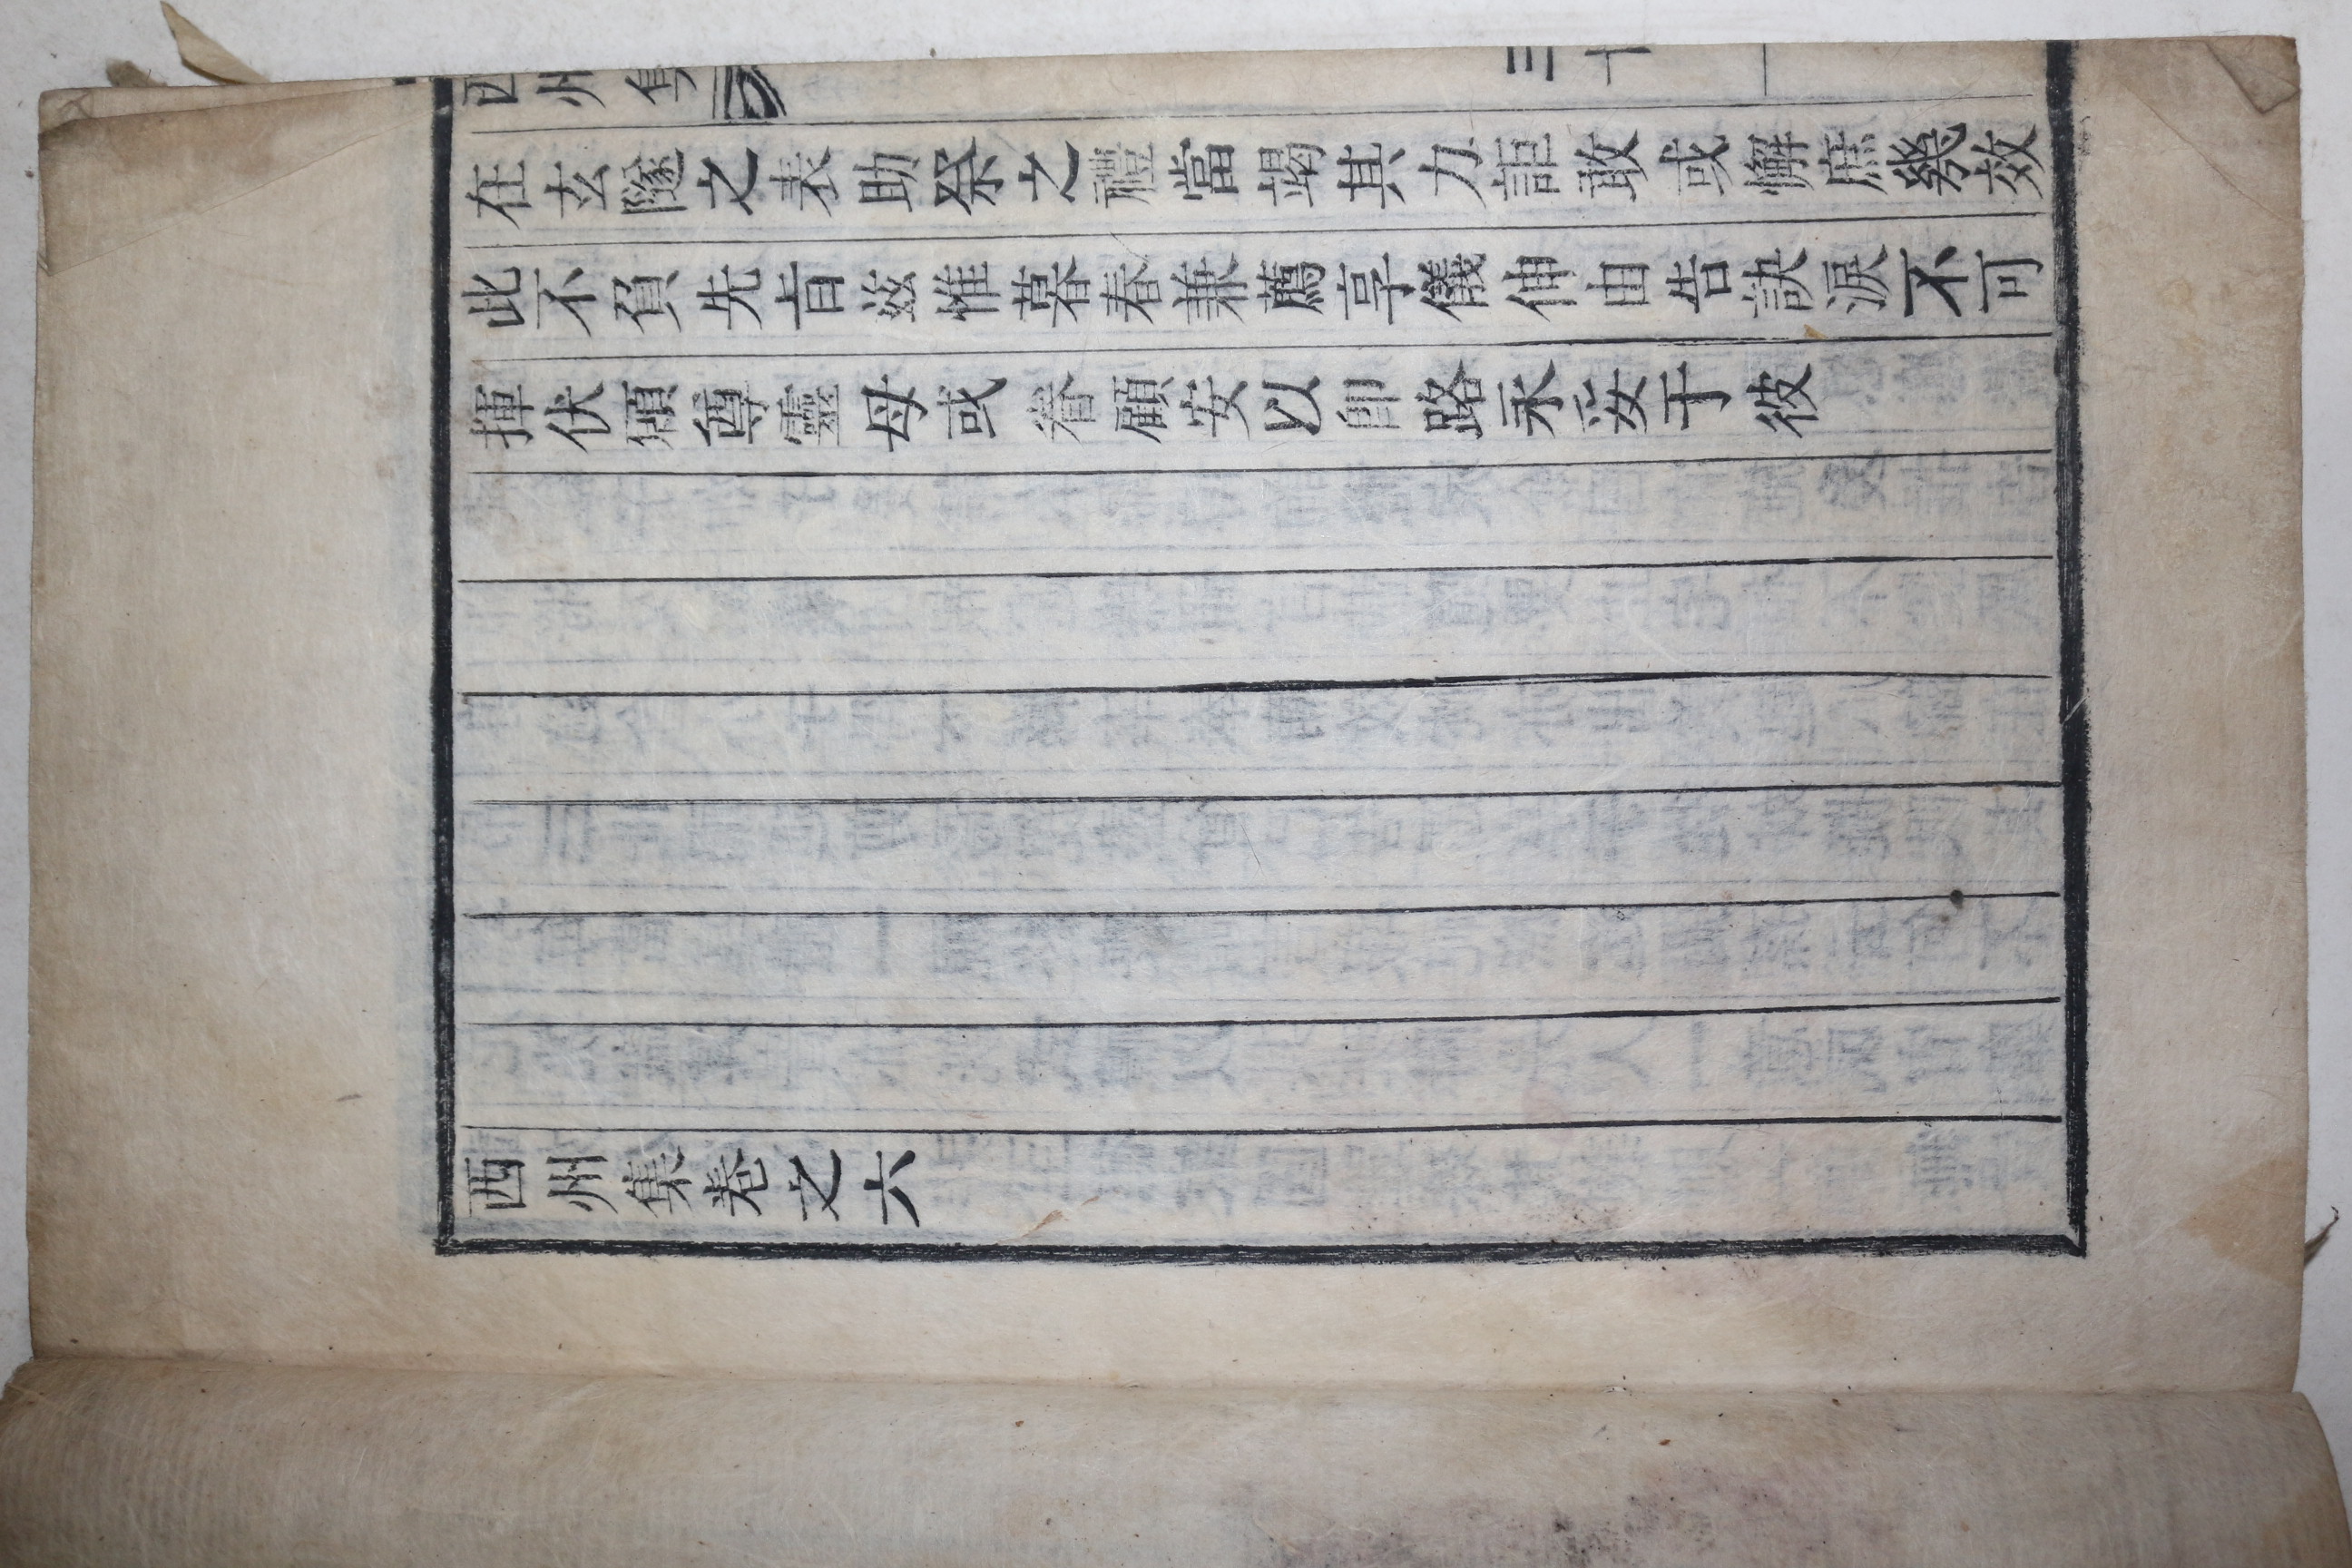 西州集
三十
在玄隧之表助祭之禮當竭其力詎敢或懈庶幾效
此不負先旨玆惟暮春兼薦享儀伸由告訣淚不可
揮伏須尊靈毋或眷顧安以卽路永妥于彼
西州集卷之六